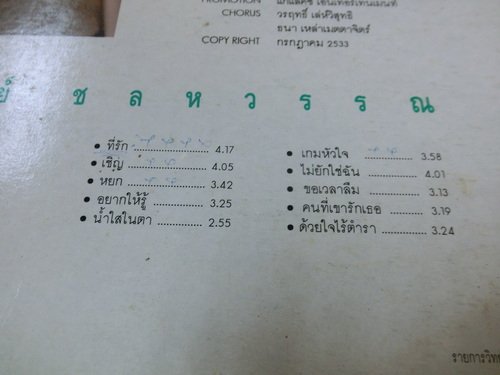 PROMOTION แกแลคซี่ เอ็นเทอร์เทนเมนท์
CHORUS วรฤทธิ์ เล่ห์วิสุทธิ์
ธนา เหล่าเมตตาจิตร์
COPY RIGHT กรกฎาคม 2533
ย์ ช ล ห ว ร ร ณ
• ที่รัก .................... 4.17
• เชิญ .................... 4.05
• หยก .................... 3.42
• อยากให้รู้ ............... 3.25
• น้ำใสในตา ............. 2.55
• เกมหัวใจ ............... 3.58
• ไม่ยักใช่ฉัน ............ 4.01
• ขอเวลาลืม ............. 3.13
• คนที่เขารักเธอ ......... 3.19
• ด้วยใจไร้ตำรา .......... 3.24
รายการวิท